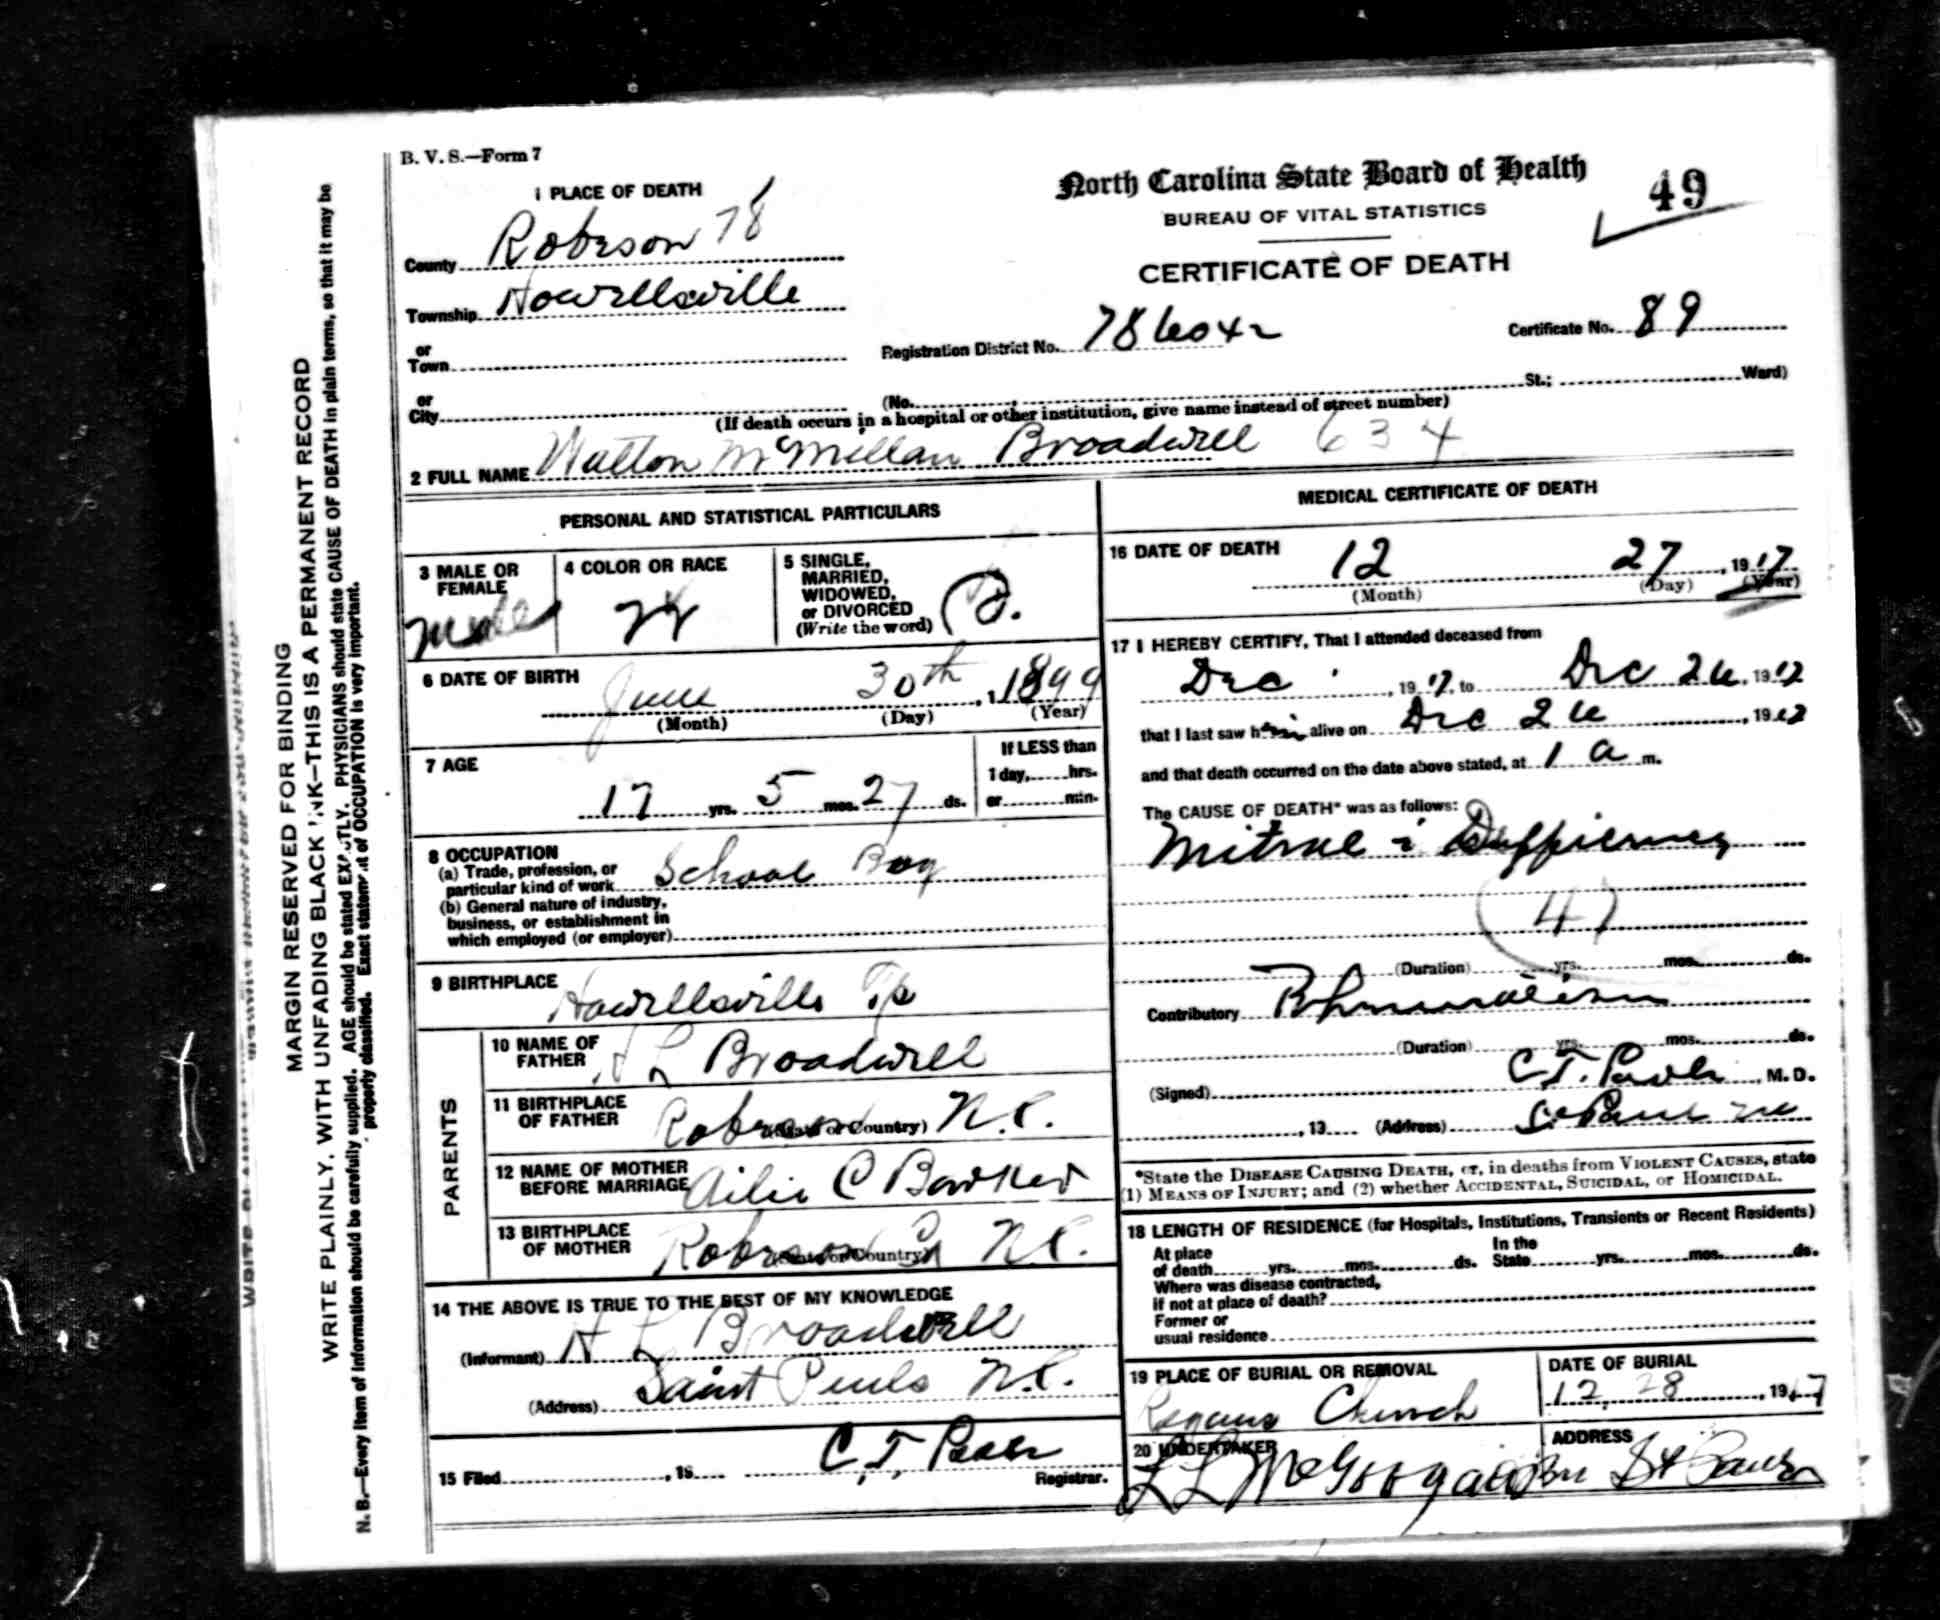 B. V. S.—Form 7
1 PLACE OF DEATH
North Carolina State Board of Health
49
BUREAU OF VITAL STATISTICS
CERTIFICATE OF DEATH
County Robeson 78
Township Howellsville
or
Town
Registration District No. 786042
Certificate No. 89
or
City
(No. St.; Ward)
(If death occurs in a hospital or other institution, give name instead of street number)
2 FULL NAME Walton McMillan Broadwell 634
PERSONAL AND STATISTICAL PARTICULARS
3 MALE OR FEMALE
Male
4 COLOR OR RACE
W
5 SINGLE, MARRIED, WIDOWED, or DIVORCED (Write the word)
S.
6 DATE OF BIRTH June 30th, 1899
(Month) (Day) (Year)
7 AGE
17 yrs. 5 mos. 27 ds.
If LESS than
1 day, hrs.
or min.
8 OCCUPATION
(a) Trade, profession, or
particular kind of work School Boy
(b) General nature of industry,
business, or establishment in
which employed (or employer)
9 BIRTHPLACE Howellsville Tp
PARENTS
10 NAME OF FATHER H L Broadwell
11 BIRTHPLACE OF FATHER (State or Country) Robeson N.C.
12 NAME OF MOTHER BEFORE MARRIAGE C Barker
13 BIRTHPLACE OF MOTHER (State or Country) Robeson Co N.C.
14 THE ABOVE IS TRUE TO THE BEST OF MY KNOWLEDGE
(Informant) H L Broadwell
(Address) Saint Pauls N.C.
15 Filed , 19
C. T.
Registrar.
MEDICAL CERTIFICATE OF DEATH
16 DATE OF DEATH 12 27, 1917
(Month) (Day) (Year)
17 I HEREBY CERTIFY, That I attended deceased from
Dec , 1917, to Dec 26, 1917
that I last saw him alive on Dec 26, 1917
and that death occurred on the date above stated, at 1 a m.
The CAUSE OF DEATH* was as follows:
Mitral
(Duration) yrs. mos. ds.
Contributory
(Duration) yrs. mos. ds.
(Signed) C. T. , M. D.
, 13 (Address) St Paul NC
*State the DISEASE CAUSING DEATH, or, in deaths from VIOLENT CAUSES, state
(1) MEANS OF INJURY; and (2) whether ACCIDENTAL, SUICIDAL, or HOMICIDAL.
18 LENGTH OF RESIDENCE (for Hospitals, Institutions, Transients or Recent Residents)
At place of death yrs. mos. ds. In the State yrs. mos. ds.
Where was disease contracted,
If not at place of death?
Former or
usual residence
19 PLACE OF BURIAL OR REMOVAL
Regans Church
DATE OF BURIAL
12, 28, 1917
20 UNDERTAKER
L L McGoogan
ADDRESS
St Pauls
MARGIN RESERVED FOR BINDING
WRITE PLAINLY, WITH UNFADING BLACK INK—THIS IS A PERMANENT RECORD
N. B.—Every item of information should be carefully supplied. AGE should be stated EXACTLY. PHYSICIANS should state CAUSE OF DEATH in plain terms, so that it may be
properly classified. Exact statement of OCCUPATION is very important.